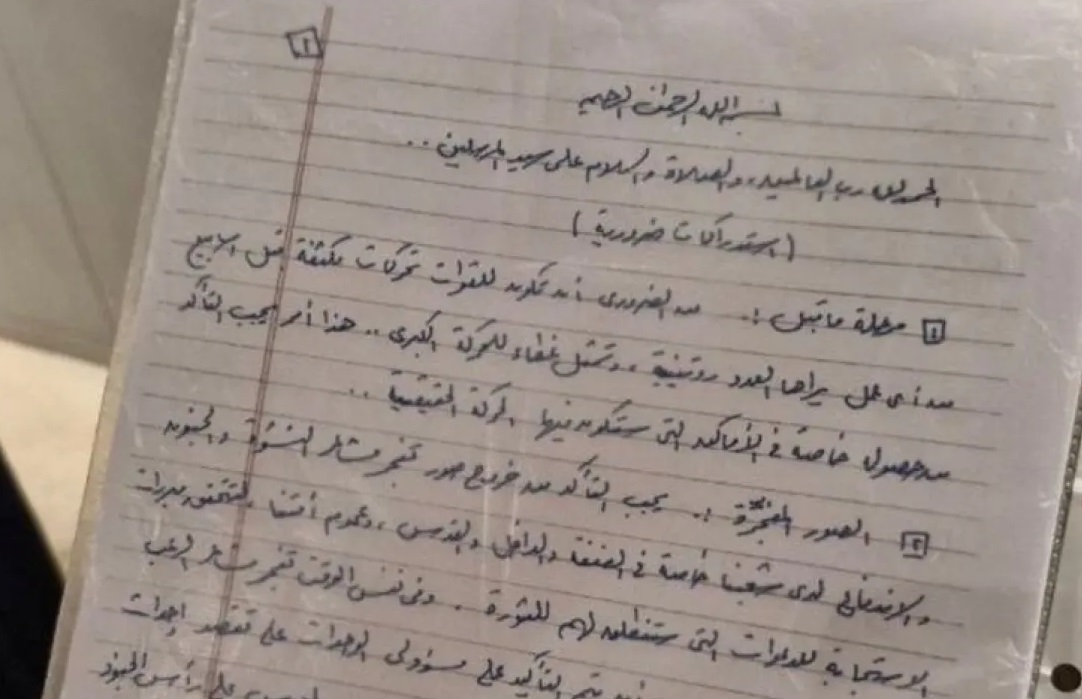 ٢
بسم الله الرحمن الرحيم
الحمد لله رب العالمين، والصلاة والسلام على سيد المرسلين ..
(استدراكات ضرورية)
١ مرحلة ما قبل :. من الضروري أن تكون للقوات تحركات مكثفة قبل أسابيع
من أي عمل يراها العدو روتينية، وتمثل غطاء للحركة الكبرى .. هذا أمر يجب التأكد
من حصوله خاصة في الأماكن التي ستكون فيها الحركة الحقيقية ..
٢ الصور المفجّرة :. يجب التأكد من خروج صور تفجر مشاعر النشوة والجنون
والاندفاع لدى شعبنا خاصة في الضفة والداخل والقدس، وعموم أمتنا لتتحقق مبررات
الاستجابة للدعوات التي ستنطلق لهم للثورة. وفي نفس الوقت تفجر مشاعر الرعب
يتم التأكيد على مسؤولي الوحدات على تقصّد إحداث
على رأس الجنود